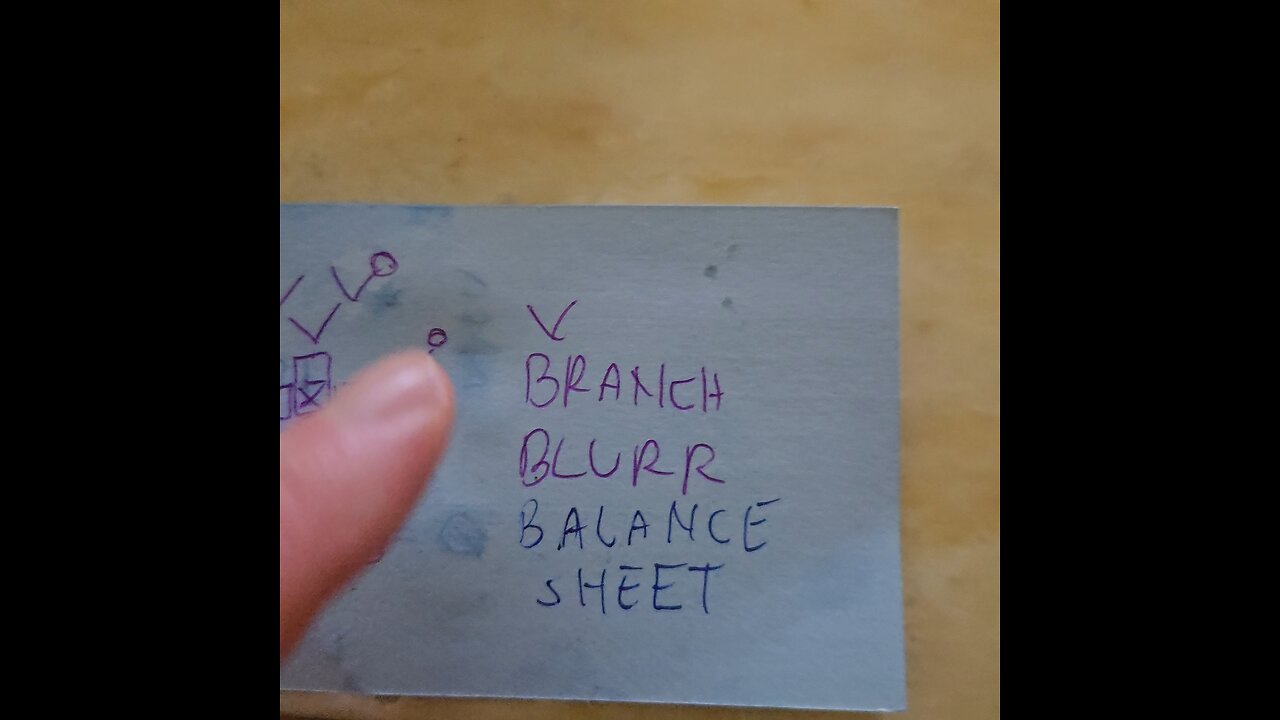 V
BRANCH
BLURR
BALANCE
SHEET